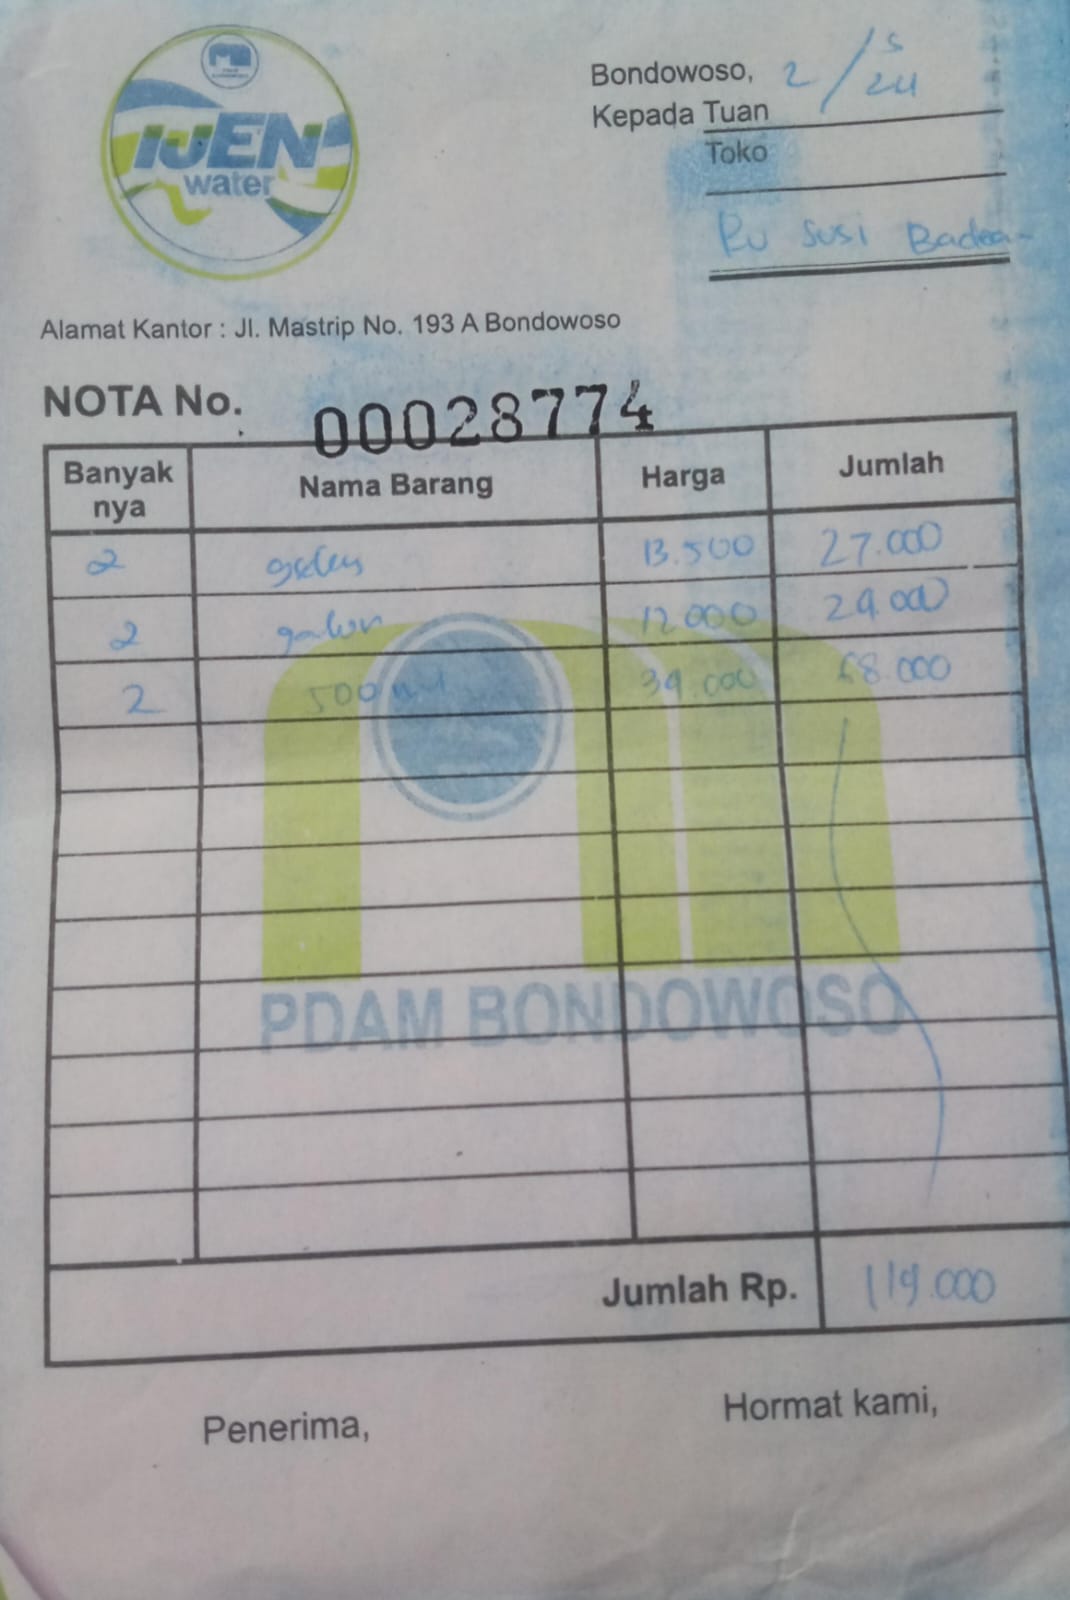 IJEN
water
Bondowoso, 2/5 24
Kepada Tuan
Toko
Bu Susi Badean
Alamat Kantor : Jl. Mastrip No. 193 A Bondowoso
NOTA No. 00028774
Banyak nya Nama Barang Harga Jumlah
2 galon 13.500 27.000
2 galon 12.000 24.000
2 500 ml 34.000 68.000
PDAM BONDOWOSO
Jumlah Rp. 119.000
Penerima, Hormat kami,